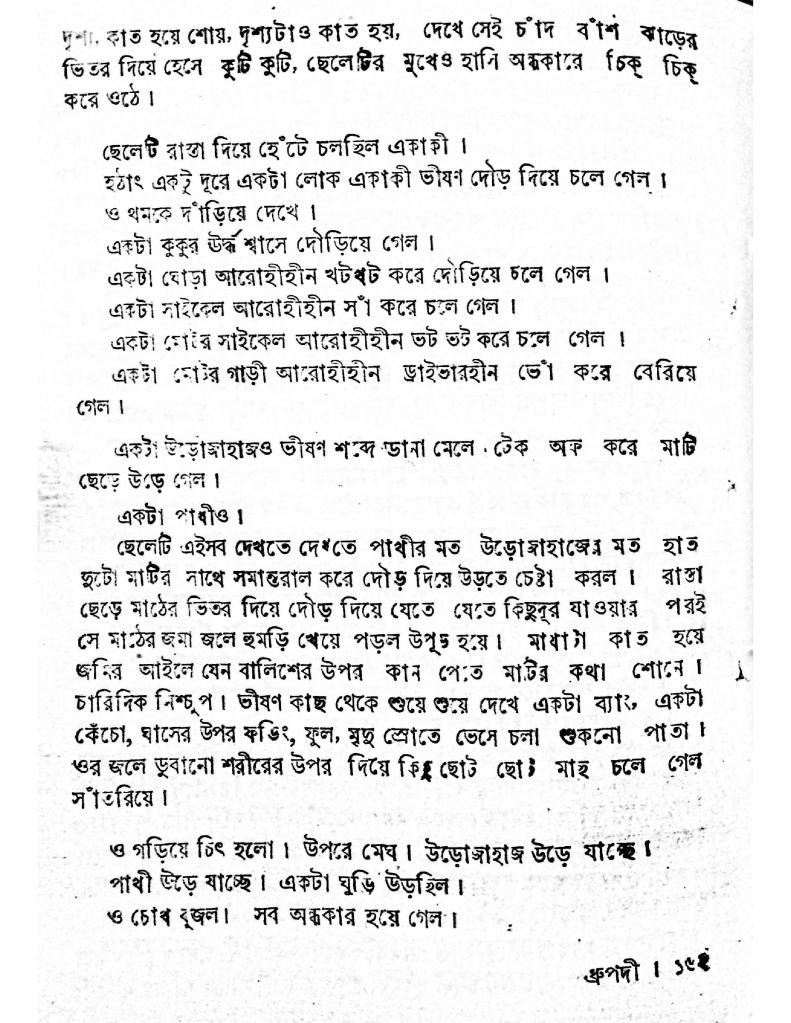 দৃশ্য, কাত হয়ে শোয়, দৃশ্যটাও কাত হয়, দেখে সেই চাঁদ বাঁশ ঝাড়ের
ভিতর দিয়ে হেসে কুটি কুটি, ছেলেটির মুখেও হাসি অন্ধকারে চিক্ চিক্
করে ওঠে।
ছেলেটি রাস্তা দিয়ে হেঁটে চলছিল একাকী।
হঠাৎ একটু দূরে একটা লোক একাকী ভীষণ দৌড় দিয়ে চলে গেল।
ও থমকে দাঁড়িয়ে দেখে।
একটা কুকুর ঊর্দ্ধ শ্বাসে দৌড়িয়ে গেল।
একটা ঘোড়া আরোহীহীন খটখট করে দৌড়িয়ে চলে গেল।
একটা সাইকেল আরোহীহীন সাঁ করে চলে গেল।
একটা মোটর সাইকেল আরোহীহীন ভট ভট করে চলে গেল।
একটা মোটর গাড়ী আরোহীহীন ড্রাইভারহীন ভোঁ করে বেরিয়ে
গেল।
একটা উড়োজাহাজও ভীষণ শব্দে ডানা মেলে টেক অফ করে মাটি
ছেড়ে উড়ে গেল।
একটা পাখীও।
ছেলেটি এইসব দেখতে দেখতে পাখীর মত উড়োজাহাজের মত হাত
দুটো মাটির সাথে সমান্তরাল করে দৌড় দিয়ে উড়তে চেষ্টা করল। রাস্তা
ছেড়ে মাঠের ভিতর দিয়ে দৌড় দিয়ে যেতে যেতে কিছুদূর যাওয়ার পরই
সে মাঠের জমা জলে হুমড়ি খেয়ে পড়ল উপুড় হয়ে। মাথাটা কাত হয়ে
জমির আইলে যেন বালিশের উপর কান পেতে মাটির কথা শোনে।
চারিদিক নিশ্চুপ। ভীষণ কাছ থেকে শুয়ে শুয়ে দেখে একটা ব্যাং, একটা
কেঁচো, ঘাসের উপর ফড়িং, ফুল, মৃদু স্রোতে ভেসে চলা শুকনো পাতা।
ওর জলে ডুবানো শরীরের উপর দিয়ে কিছু ছোট ছোট মাছ চলে গেল
সাঁতরিয়ে।
ও গড়িয়ে চিৎ হলো। উপরে মেঘ। উড়োজাহাজ উড়ে যাচ্ছে।
পাখী উড়ে যাচ্ছে। একটা ঘুড়ি উড়ছিল।
ও চোখ বুজল। সব অন্ধকার হয়ে গেল।
ধ্রুপদী।